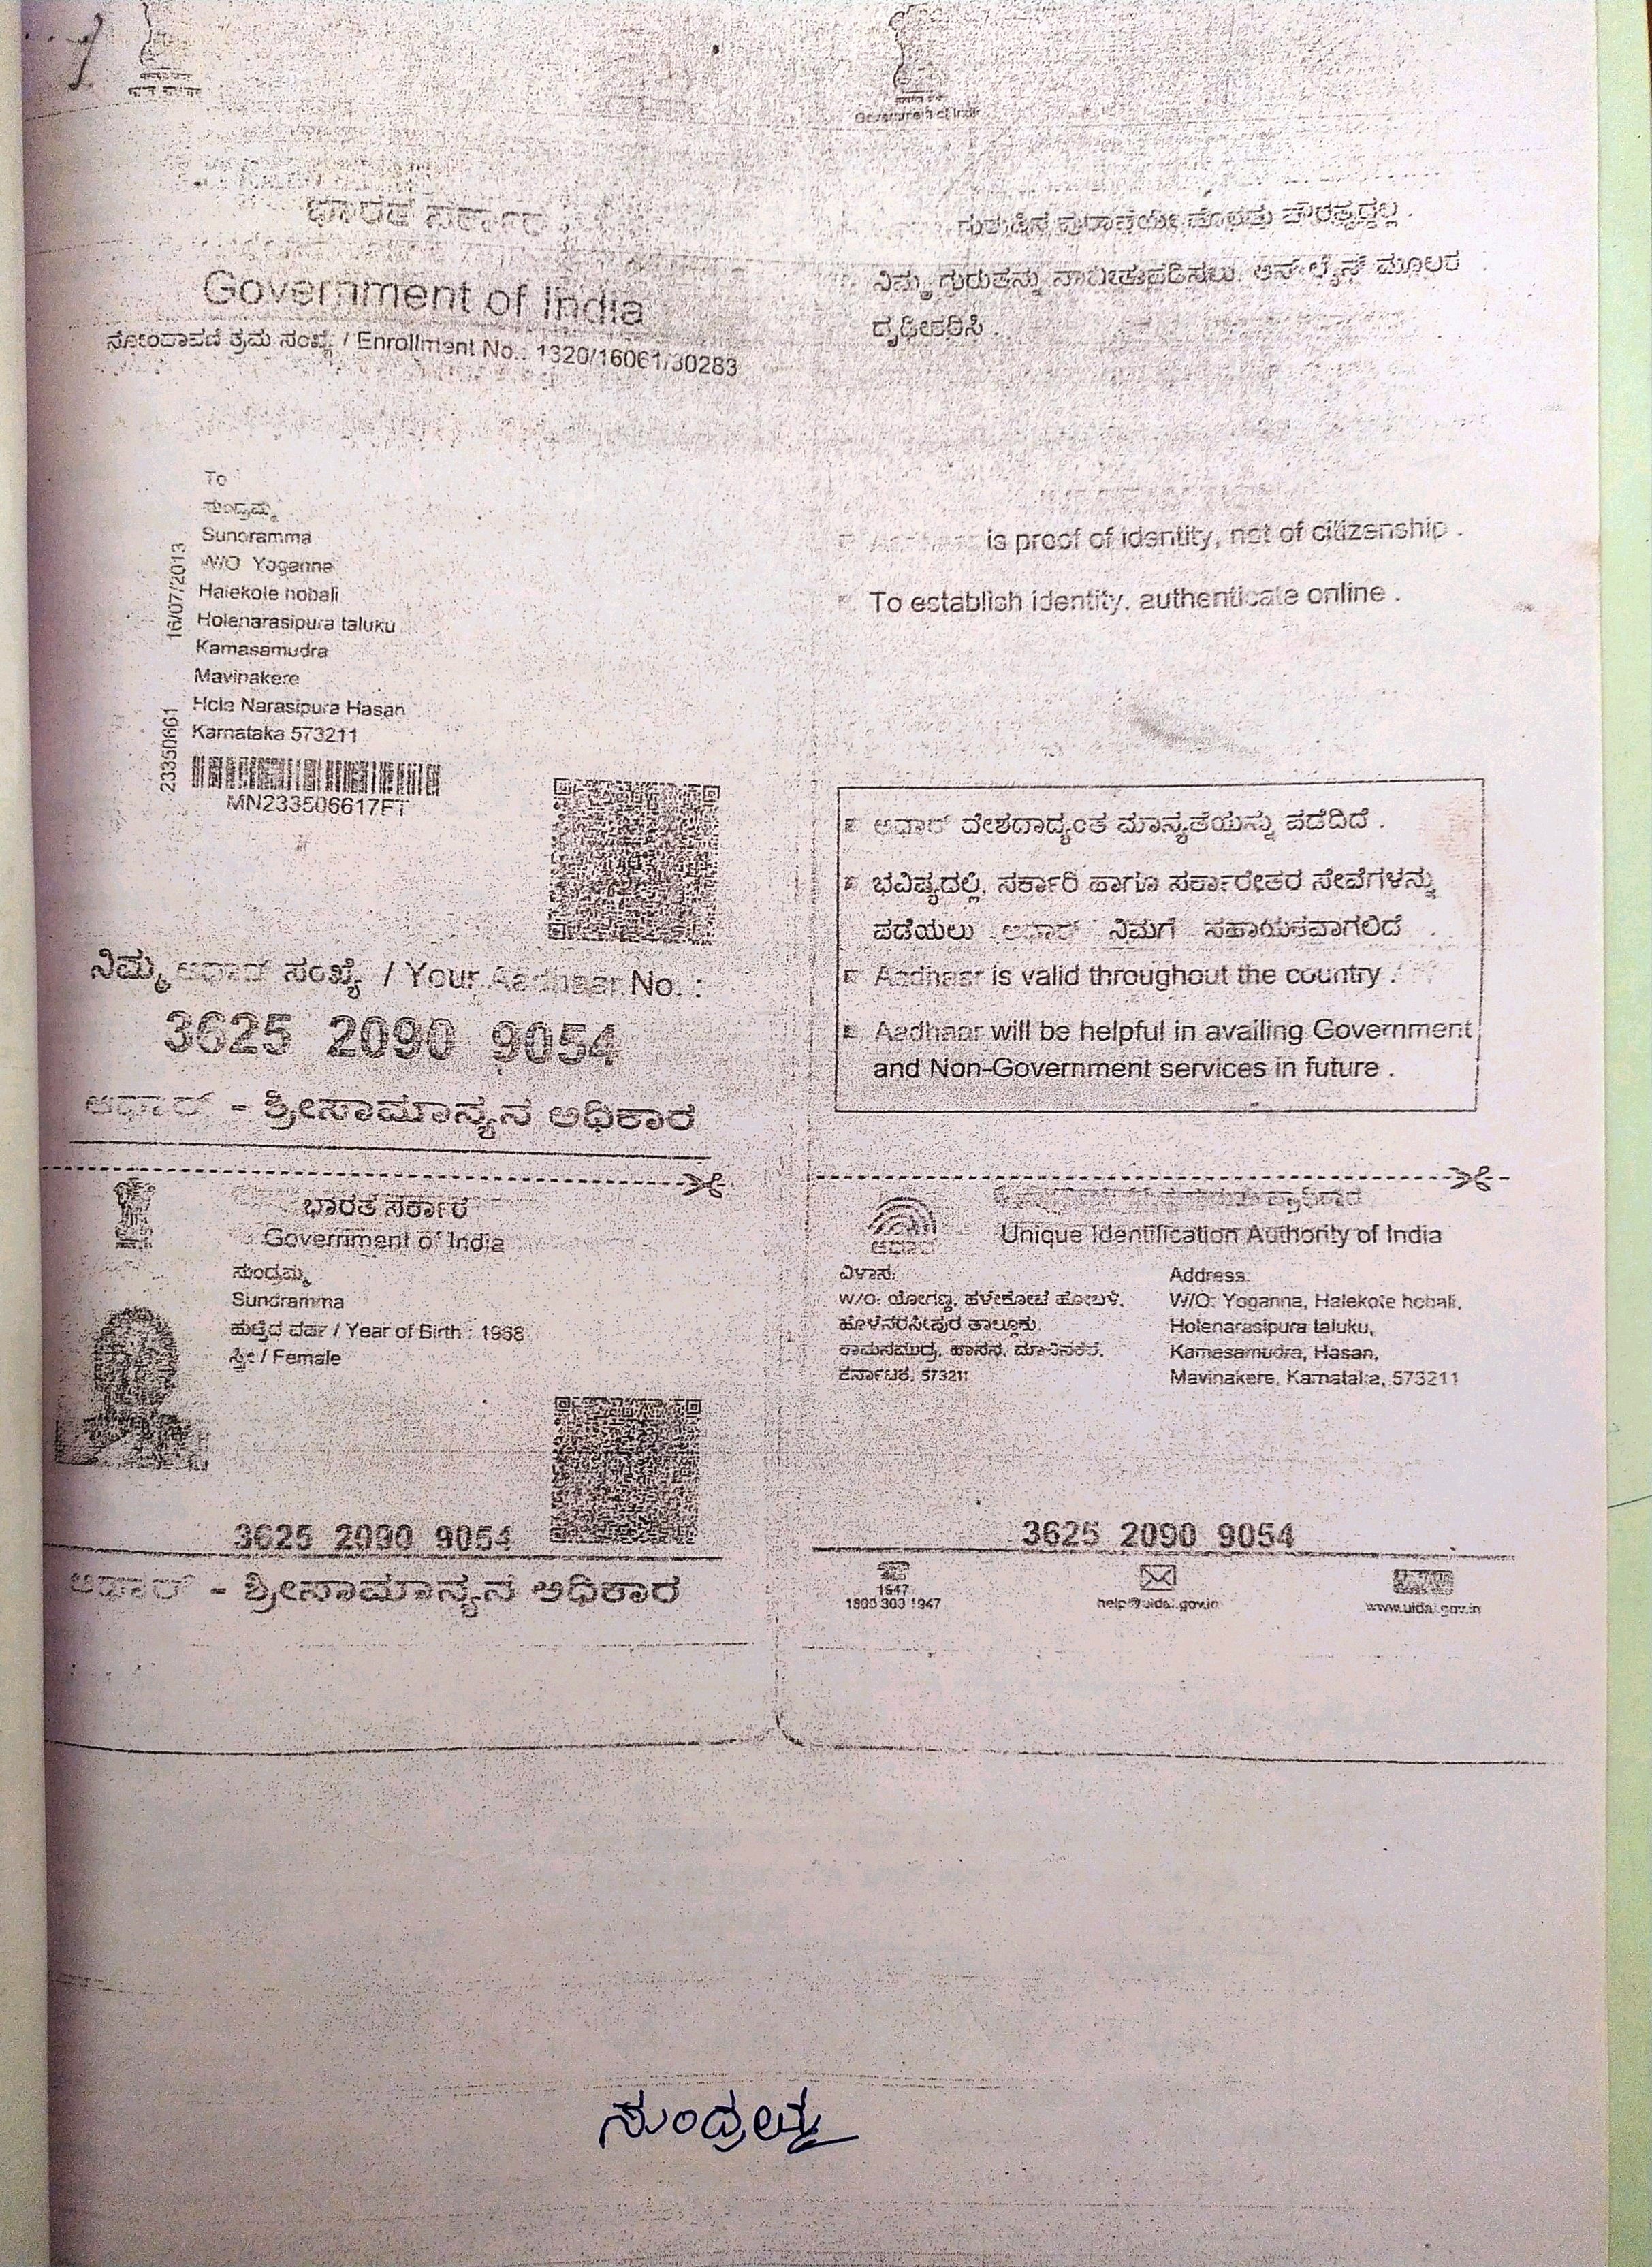 Government of India
ಭಾರತ ಸರ್ಕಾರ
Government of India
ನೋಂದಾವಣಿ ಕ್ರಮ ಸಂಖ್ಯೆ / Enrollment No.: 1320/16061/30283
To
ಸುಂದ್ರಮ್ಮ
Sundramma
W/O Yoganna
Halekote hobali
Holenarasipura taluku
Kamasamudra
Mavinakere
Hole Narasipura Hasan
Karnataka 573211
16/07/2013
23350661
MN233506617FT
ನಿಮ್ಮ ಆಧಾರ್ ಸಂಖ್ಯೆ / Your Aadhaar No. :
3625 2090 9054
ಆಧಾರ್ - ಶ್ರೀಸಾಮಾನ್ಯನ ಅಧಿಕಾರ
ನಿಮ್ಮ ಗುರುತನ್ನು
ಆನ್‌ಲೈನ್ ಮೂಲಕ
ದೃಢೀಕರಿಸಿ .
Aadhaar is proof of identity, not of citizenship .
To establish identity, authenticate online .
ಆಧಾರ್ ದೇಶದಾದ್ಯಂತ ಮಾನ್ಯತೆಯನ್ನು ಪಡೆದಿದೆ .
ಭವಿಷ್ಯದಲ್ಲಿ, ಸರ್ಕಾರಿ ಹಾಗೂ ಸರ್ಕಾರೇತರ ಸೇವೆಗಳನ್ನು
ಪಡೆಯಲು ಆಧಾರ್ ನಿಮಗೆ ಸಹಾಯಕವಾಗಲಿದೆ .
Aadhaar is valid throughout the country .
Aadhaar will be helpful in availing Government
and Non-Government services in future .
ಭಾರತ ಸರ್ಕಾರ
Government of India
ಸುಂದ್ರಮ್ಮ
Sundramma
ಹುಟ್ಟಿದ ವರ್ಷ / Year of Birth : 1968
ಸ್ತ್ರೀ / Female
3625 2090 9054
ಆಧಾರ್ - ಶ್ರೀಸಾಮಾನ್ಯನ ಅಧಿಕಾರ
ಆಧಾರ್
Unique Identification Authority of India
ವಿಳಾಸ:
W/O: ಯೋಗಣ್ಣ, ಹಳೇಕೋಟೆ ಹೋಬಳಿ,
ಹೊಳೆನರಸೀಪುರ ತಾಲ್ಲೂಕು,
ಕಾಮಸಮುದ್ರ, ಹಾಸನ, ಮಾವಿನಕೆರೆ,
ಕರ್ನಾಟಕ, 573211
Address:
W/O: Yoganna, Halekote hobali,
Holenarasipura taluku,
Kamasamudra, Hasan,
Mavinakere, Karnataka, 573211
3625 2090 9054
1947
1800 300 1947
help@uidai.gov.in
www.uidai.gov.in
ಸುಂದ್ರಮ್ಮ